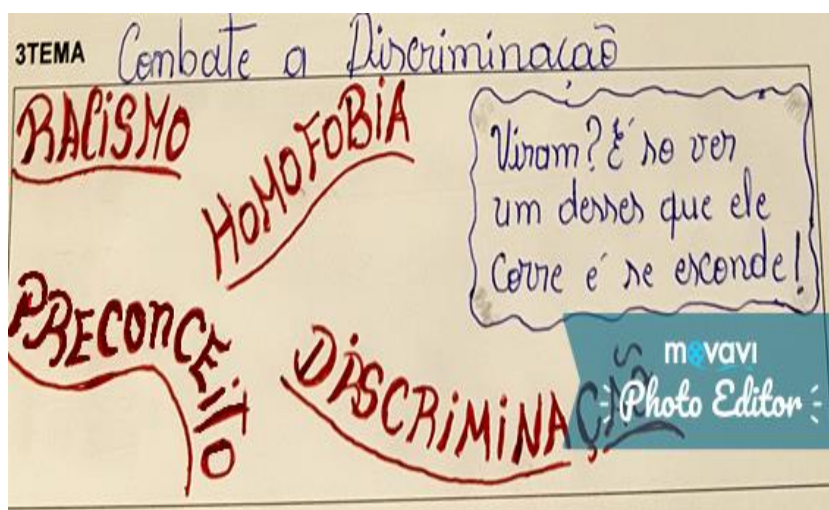 3TEMA Combate a Discriminacaõ
RACiSMO
HOMOFOBiA
Viram? É so ver
um desses que ele
corre e´ se esconde!
PRECONCEiTO
DiSCRiMiNAÇÃO
movavi
Photo Editor